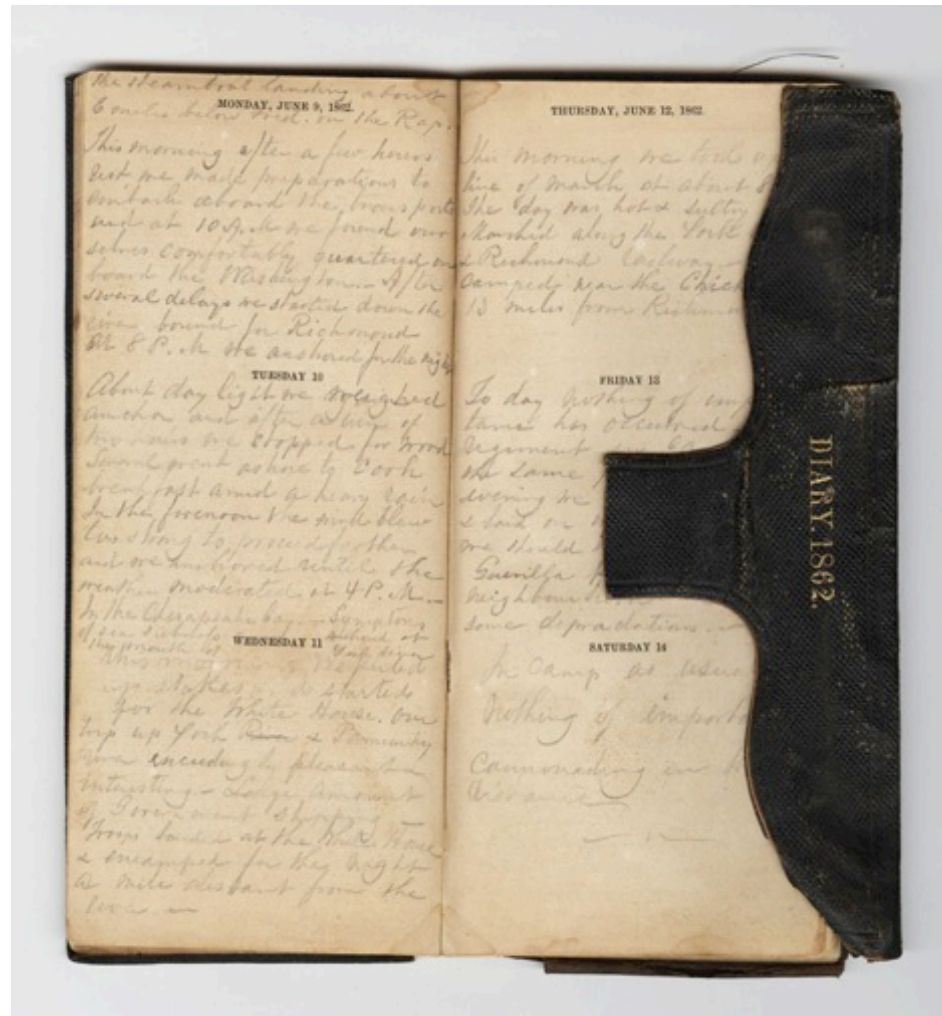 the steamboat landing about
MONDAY, JUNE 9, 1862.
6 miles below Fred. on the Rap.
This morning after a few hours
rest we made preparations to
embark aboard the transports
and at 10 A.M we found our
selves comfortably quartered on
board the Washington. After
several delays we started down the
river bound for Richmond
At 8 P.M we anchored for the night
TUESDAY 10
About day light we weighed
anchor and after a run of
two hours we stopped for wood
Some went ashore to Cook
breakfast amid a heavy rain
In the forenoon the wind blew
too strong to proceed further
and we anchored until the
weather moderated at 4 P.M.
In the Chesapeake bay - Symptoms
of sea sickness
WEDNESDAY 11
this morning
up stakes & started
for the White House. Our
trip up York River & Pamunkey
river exceedingly pleasant &
interesting - Large amount
of Government shipping -
Troops landed at the White House
& encamped for the night
a mile distant from the
river -
THURSDAY, JUNE 12, 1862.
This morning we took up
line of march at about 8
The day was hot & sultry
Marched along the York
& Richmond Railway -
Camped near the Chick
13 miles from Richmon
FRIDAY 13
To day nothing of imp
tance has occurred
regiment
the same
evening we
& back on
we should
Guerilla
neighbour
some depradations
SATURDAY 14
In camp as usua
Nothing of importa
Cannonading in
distance
DIARY. 1862.